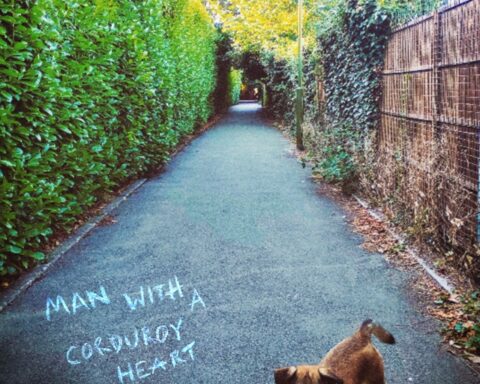 MAN WITH A
CORDUROY
HEART